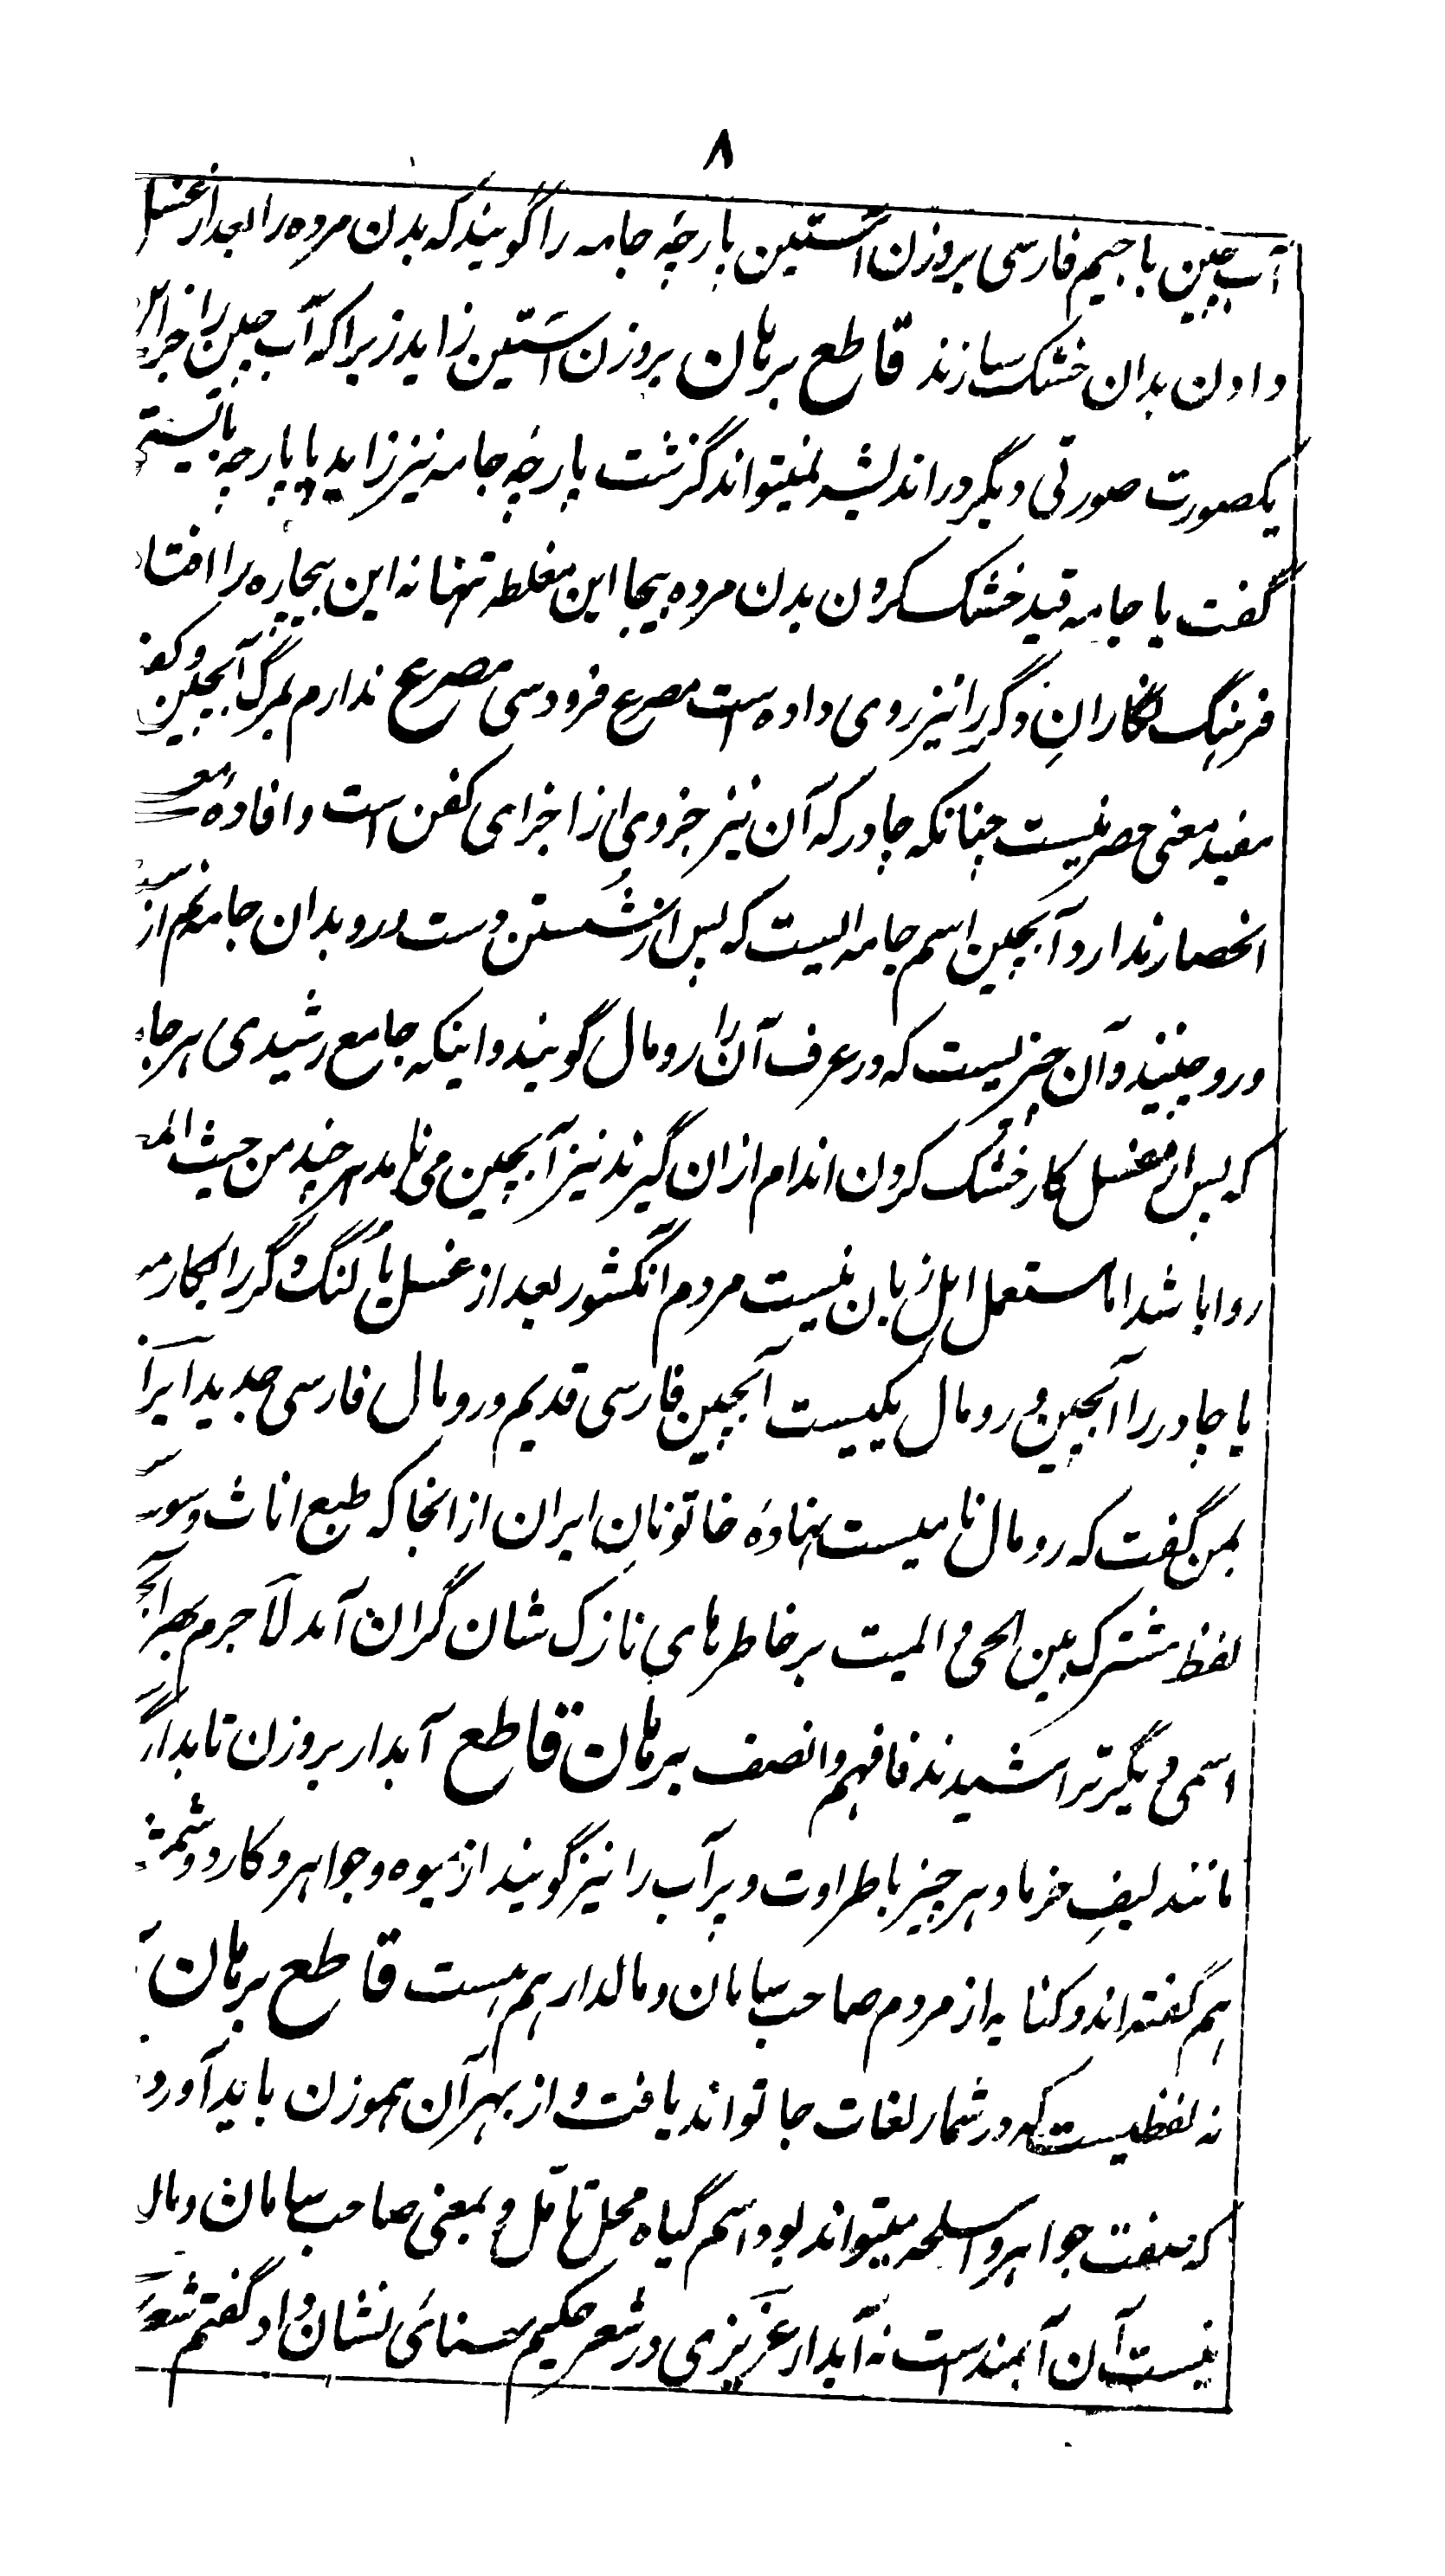 ۸
آب چین با جیم فارسی بروزن آستین پارچه جامه را گویند که بدن مرده را بعد از غسل
دادن بدان خشک سازند قاطع برهان بروزن آستین زاید زیرا که آب چین را جز این
یکصورت صورتی دیگر در اندیشه نمیتواند گزشت پارچه جامه نیز زاید یا پارچه بایستی
گفت یا جامه قید خشک کردن بدن مرده بیجا این مغلطه تنها نه این بیچاره را افتاد
فرهنگ نگاران دگر را نیز روی داده است مصرع فردوسی مصرع ندارم بمرگ آبچین و کفن
مفید معنی حصر نیست چنانکه چادر که آن نیز جزوی از اجزای کفن است و افادهٔ
انحصار ندارد آبچین اسم جامه ایست که پس از شستن دست و رو بدان جامه نم از
و رو چینند و آن چیزیست که در عرف آن را رومال گویند و اینکه جامع رشیدی هر جامه
که پس از غسل کار خشک کردن اندام ازان گیرند نیز آبچین می نامد هر چند من حیث
روا باشد اما مستعمل اهل زبان نیست مردم آنکشور بعد از غسل یا لنگ دگر را بکار
یا چادر را آبچین و رومال یکیست آبچین فارسی قدیم و رومال فارسی جدید
بمن گفت که رومال نامیست نهادهٔ خاتونان ایران از انجا که طبع اناث
لفظ مشترک بین الحی و المیت بر خاطرهای نازک شان گران آمد لاجرم بهر
اسمی دیگر تراشیدند فافهم وانصف برهان قاطع آبدار بروزن تابدار
مانند لیف خرما و هر چیز با طراوت و پر آب را نیز گویند از میوه و جواهر و کارد و
هم گفته اند و کنایه از مردم صاحب سامان و مالدار هم هست قاطع برهان
نه لفظیست که در شمار لغات جا تواند یافت و از بهر آن هموزن باید آورد
که صفت جواهر و اسلحه میتواند بود و اسم گیاه محل تامّل و بمعنی صاحب سامان و مال
نیست آن آبمند است نه آبدار عزیزی در شعر حکیم سنائی نشان داد گفتم